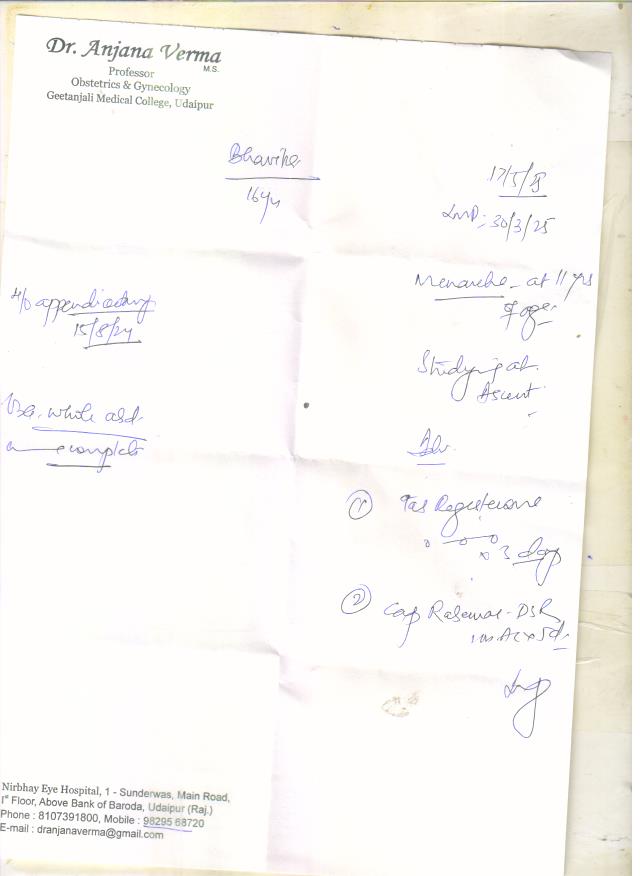 Dr. Anjana Verma
M.S.
Professor
Obstetrics & Gynecology
Geetanjali Medical College, Udaipur
Bhavika
16yr
17/5/25
LMP: 30/3/25
Menarche - at 11 yrs
of age
H/o appendicectomy
15/8/24
Studying at
Ascent
USG. whole abd.
Adv.
① Tab Regesterone
x 3 days
② Cap Rabemac-DSR
1 OD AC x 5d
Nirbhay Eye Hospital, 1 - Sunderwas, Main Road,
Ist Floor, Above Bank of Baroda, Udaipur (Raj.)
Phone : 8107391800, Mobile : 98295 68720
E-mail : dranjanaverma@gmail.com